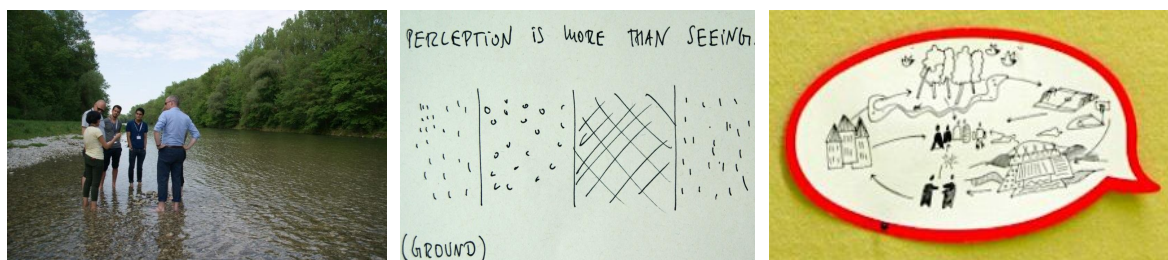 PERCEPTION IS MORE THAN SEEING.
(GROUND)